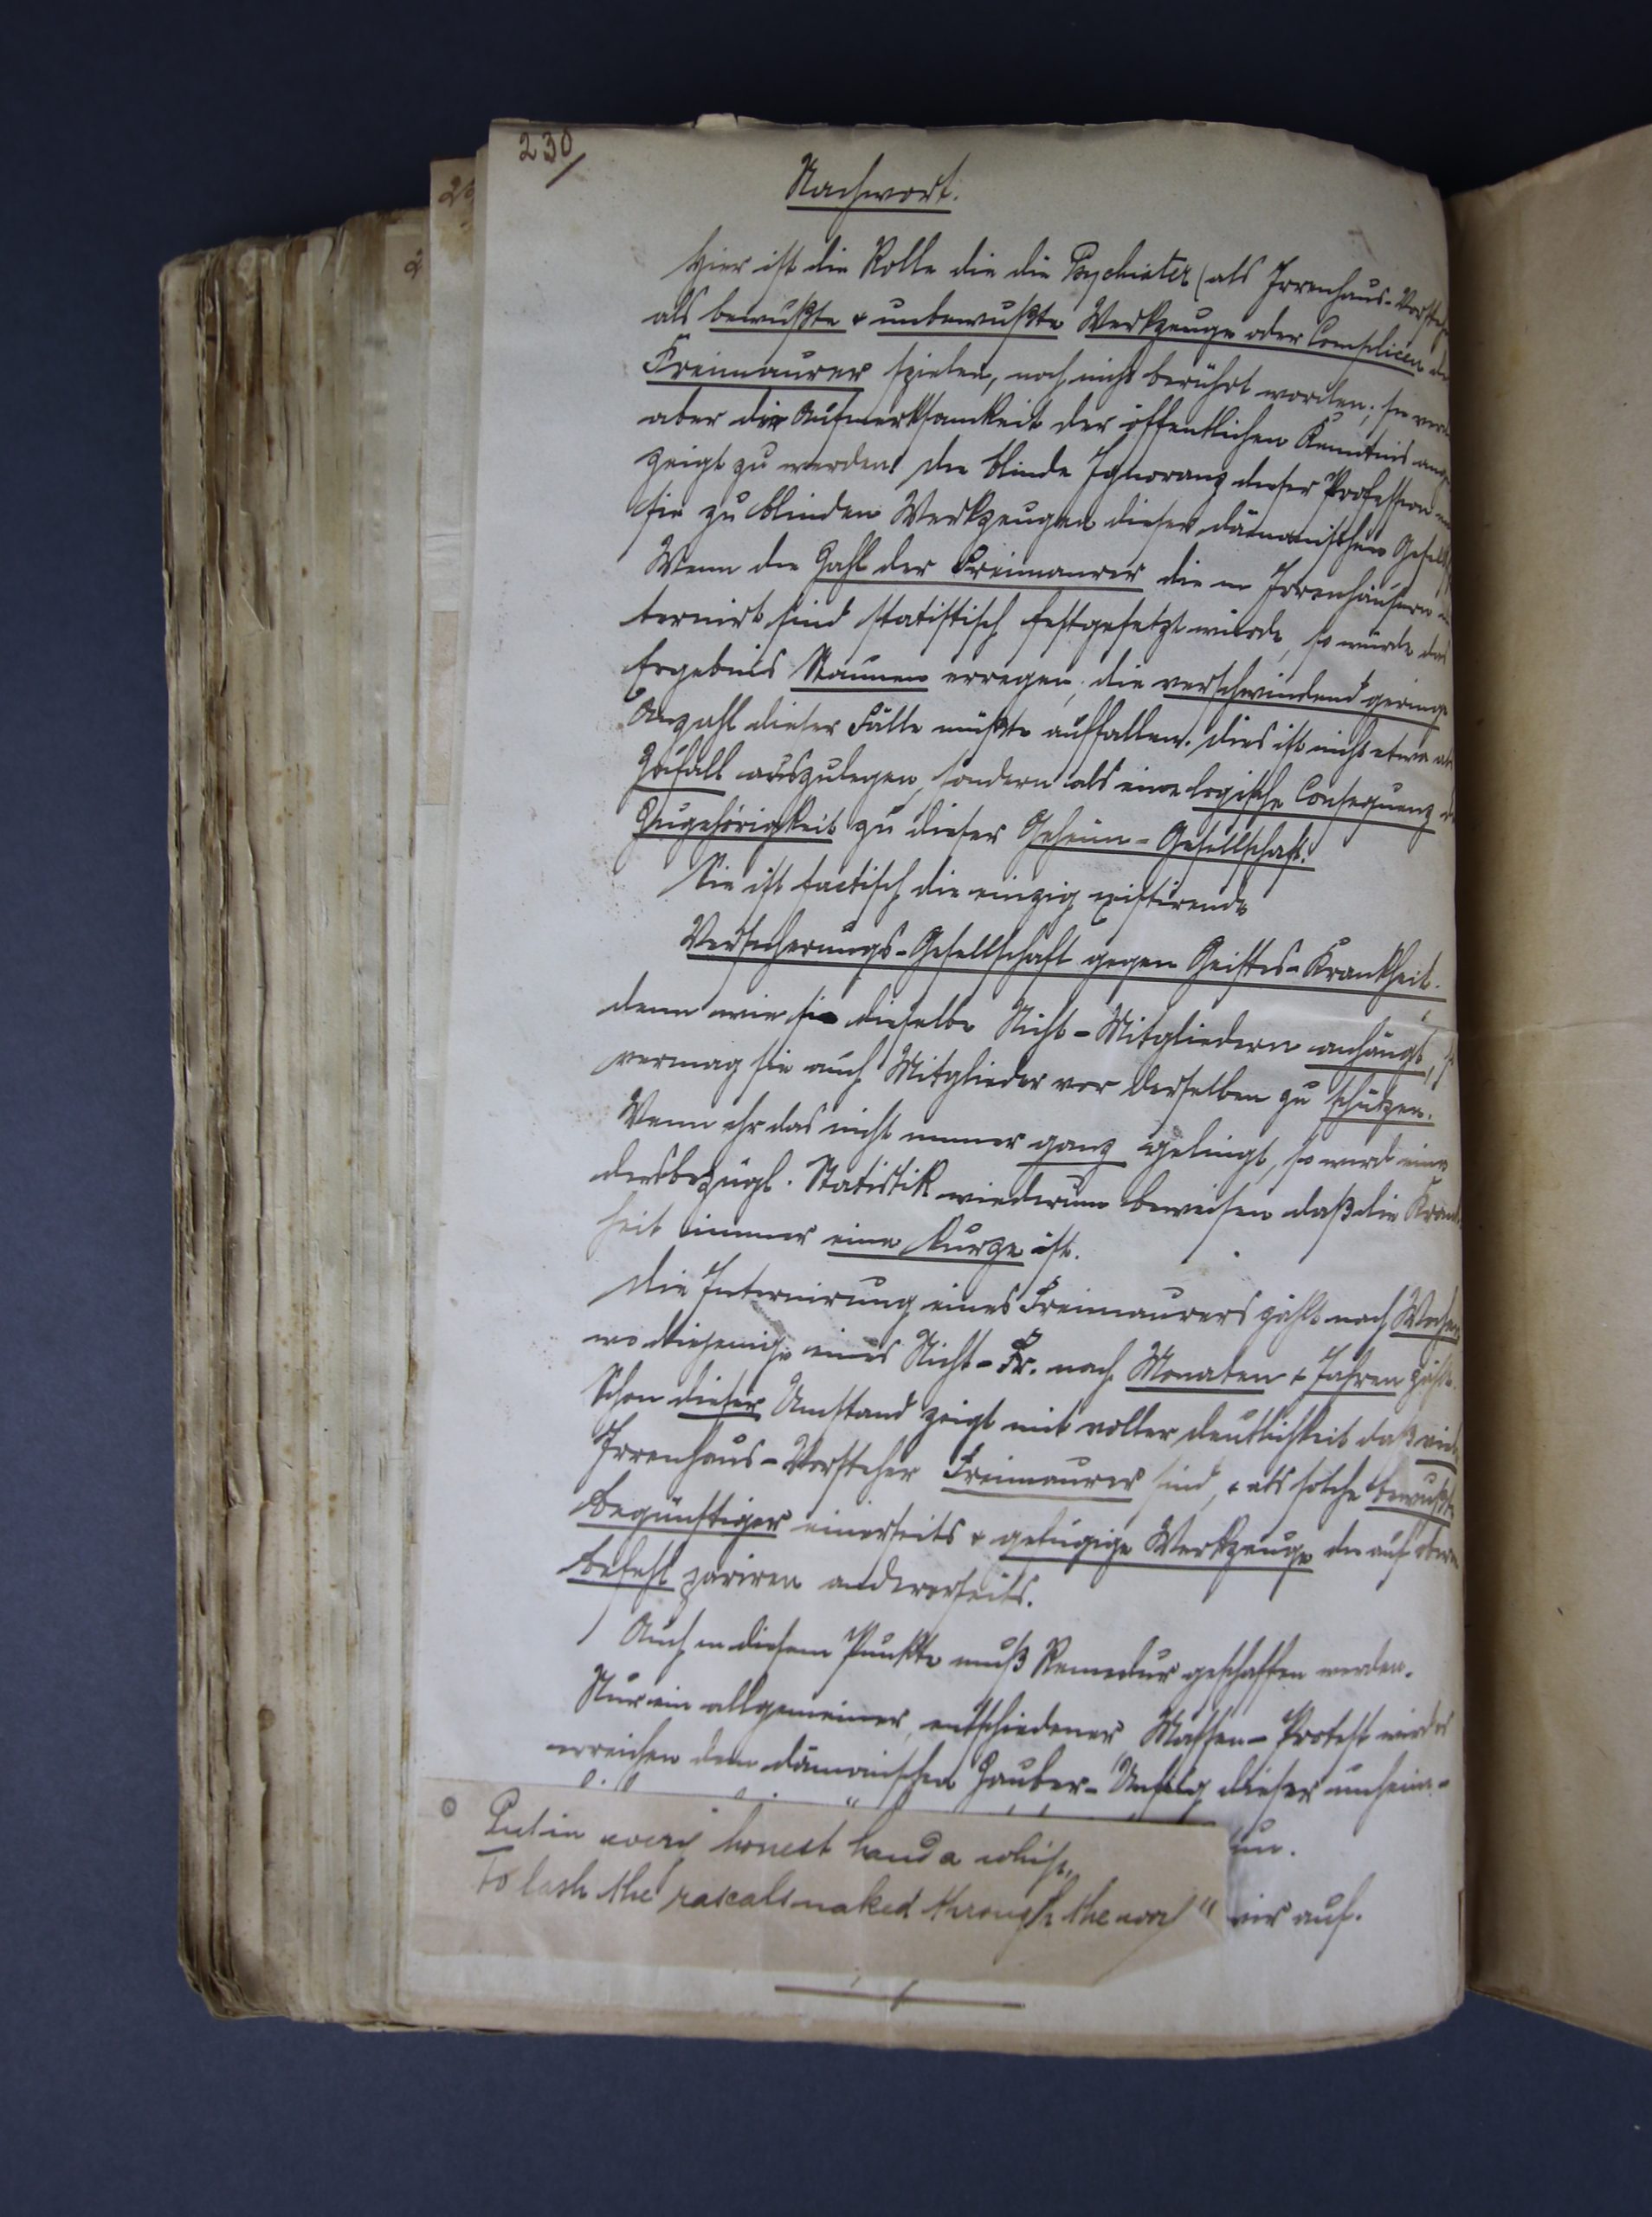 230/
Nachwort.
Hier ist die Rolle die die Psychiater (als Irrenhaus-Vorsteh
als bewußte & unbewußte Werkzeuge oder Complicen de
Freimaurer spielen, noch nicht berührt worden; sie
aber die Aufmerksamkeit der öffentlichen Kenntnis
zeigt zu werden. Die blinde Ignoranz dieser Profession
sie zu blinden Werkzeugen dieser dämonischen Gesells
Wenn die Zahl der Freimaurer die in Irrenhäusern in
ternirt sind statistisch festgesetzt würde, so würde das
Ergebnis Staunen erregen; die verschwindend geringe
Anzahl dieser Fälle müßte auffallen. Dies ist nicht etwa als
Zufall auszulegen, sondern als eine logische Consequenz
Zugehörigkeit zu dieser Geheim-Gesellschaft.
Sie ist factisch die einzig existirende
Versicherungs-Gesellschaft gegen Geistes-Krankheit.
denn wie sie dieselbe Nicht-Mitgliedern anhängt, s
vermag sie auch Mitglieder vor derselben zu schützen.
Wenn ihr das nicht immer ganz gelingt, so wird eine
diesbezügl. Statistik wiederum beweisen daß die Krank
heit immer eine kurze ist.
Die Internirung eines Freimaurers zählt nach Wochen
wo diejenige eines Nicht-Fr. nach Monaten & Jahren zählt.
Schon dieser Umstand zeigt mit voller Deutlichkeit daß viele
Irrenhaus-Vorsteher Freimaurer sind, & als solche bewußte
Begünstiger einerseits & gefügige Werkzeuge die auf
Befehl pariren andererseits.
Auch in diesem Punkte muß Remedur geschaffen werden.
Nur ein allgemeiner, entschiedener Massen-Protest wird es
erreichen dem dämonischen Zauber-Unfug dieser unheim-
un.
Put in every honest hand a whip,
To lash the rascals naked through the world"
wir auf.